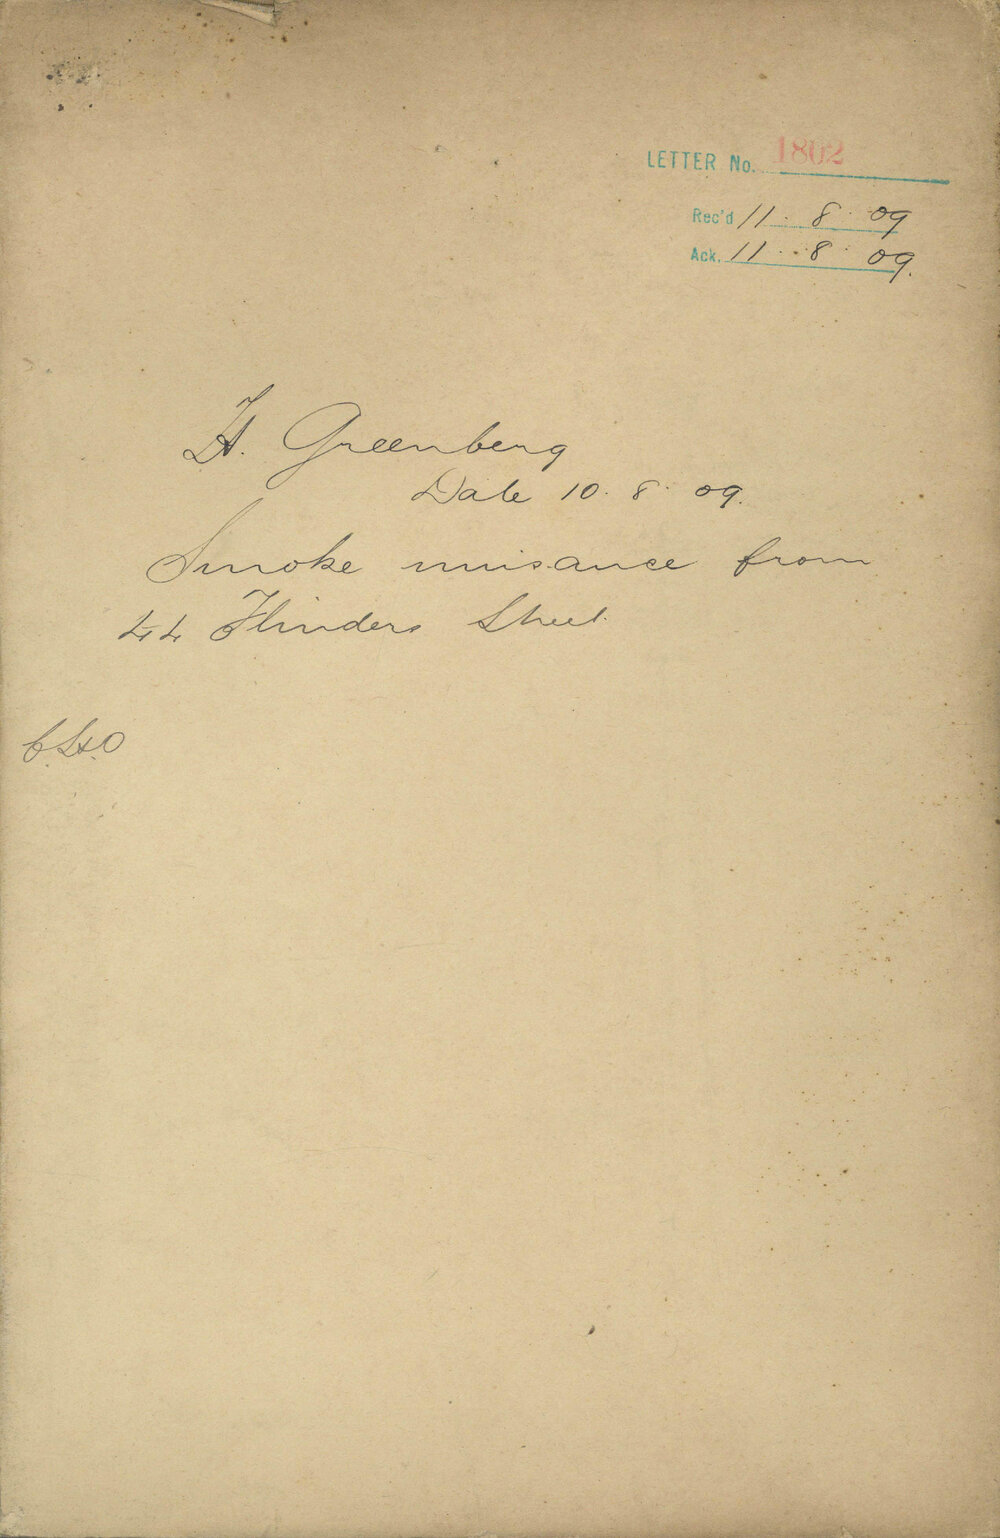 LETTER No. 1802
Rec'd 11. 8. 09
Ack. 11. 8. 09.
H. Greenberg
Date 10. 8. 09.
Smoke nuisance from
44 Flinders Street.
C.H.O